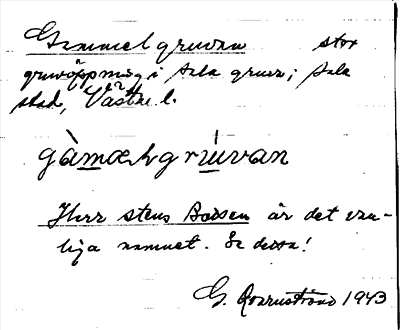 Gammel gruvan stor
gruvöppning i Sala gruva; Sala
stad, Västm. l.
gàmœlgrúvan
Herr stens Botten är det van-
liga namnet. Se dessa!
G. 1943